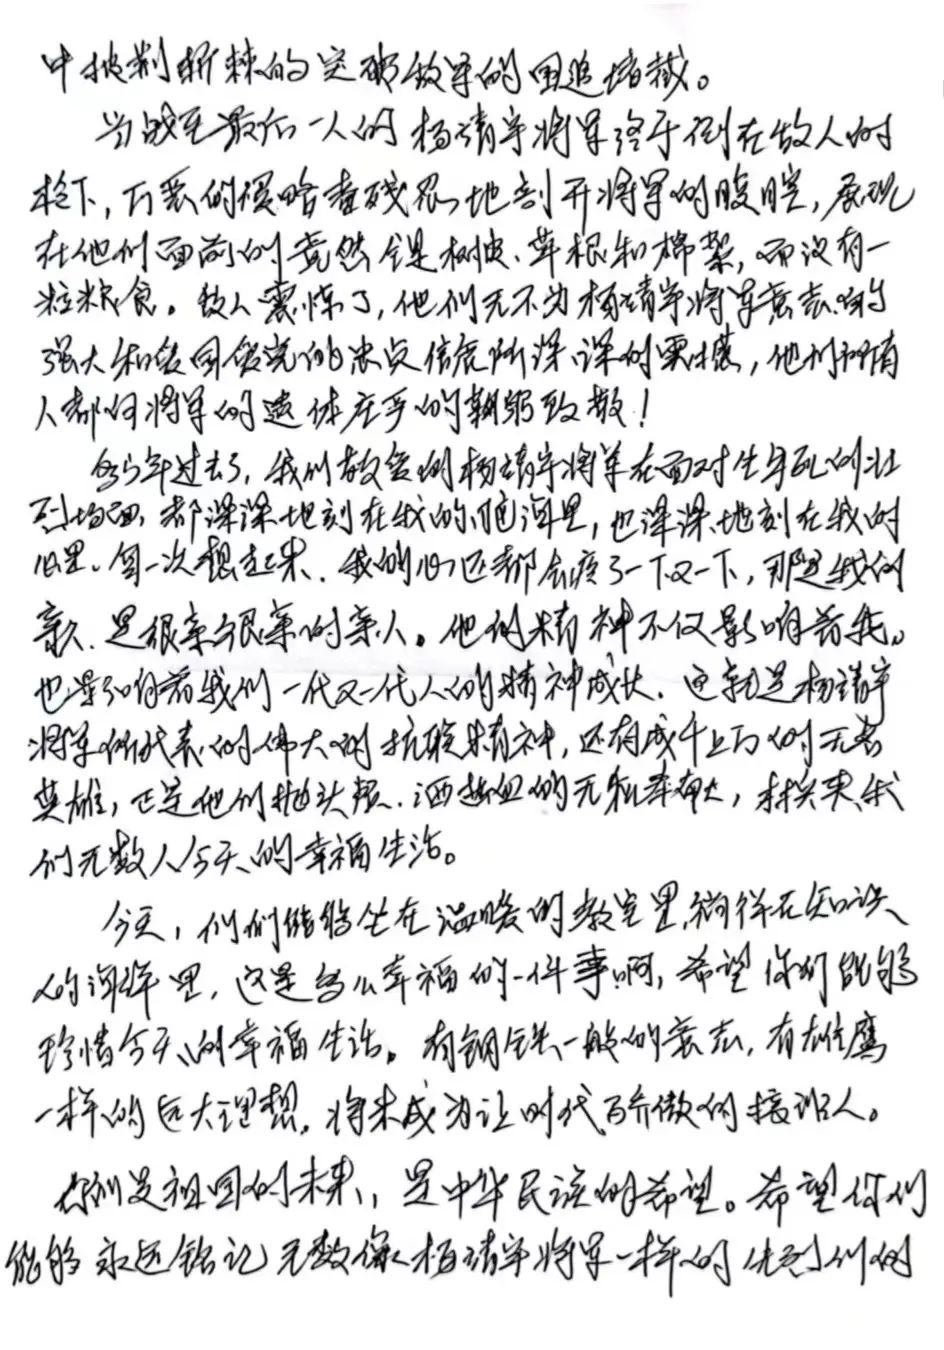 中披荆斩棘的突破敌军的围追堵截。
当战至最后一人的杨靖宇将军终于倒在敌人的
枪下，万恶的侵略者残忍地剖开将军的腹腔，展现
在他们面前的竟然全是树皮、草根和棉絮，而没有一
粒粮食。敌人震惊了，他们无不为杨靖宇将军意志的
强大和爱国爱党的忠贞信念所深深的震撼，他们所有
人都向将军的遗体庄严的鞠躬致敬！
多少年过去了，我们敬爱的杨靖宇将军在面对生与死的壮
烈场面，都深深地刻在我的脑海里，也深深地刻在我的
心里。每一次想起来，我的心匹都会疼了一下又一下，那是我的
亲人，是很亲很亲的亲人。他的精神不仅影响着我。
也影响着我们一代又一代人的精神成长。这就是杨靖宇
将军所代表的伟大的抗联精神，还有成千上万的无名
英雄，正是他们抛头颅、洒热血的无私奉献，才换来我
们无数人今天的幸福生活。
今天，你们能够坐在温暖的教室里，徜徉在知识
的海洋里，这是多么幸福的一件事啊，希望你们能够
珍惜今天的幸福生活。有钢铁一般的意志，有雄鹰
一样的远大理想，将来成为让时代骄傲的接班人。
你们是祖国的未来，是中华民族的希望。希望你们
能够永远铭记无数像杨靖宇将军一样的先烈们的